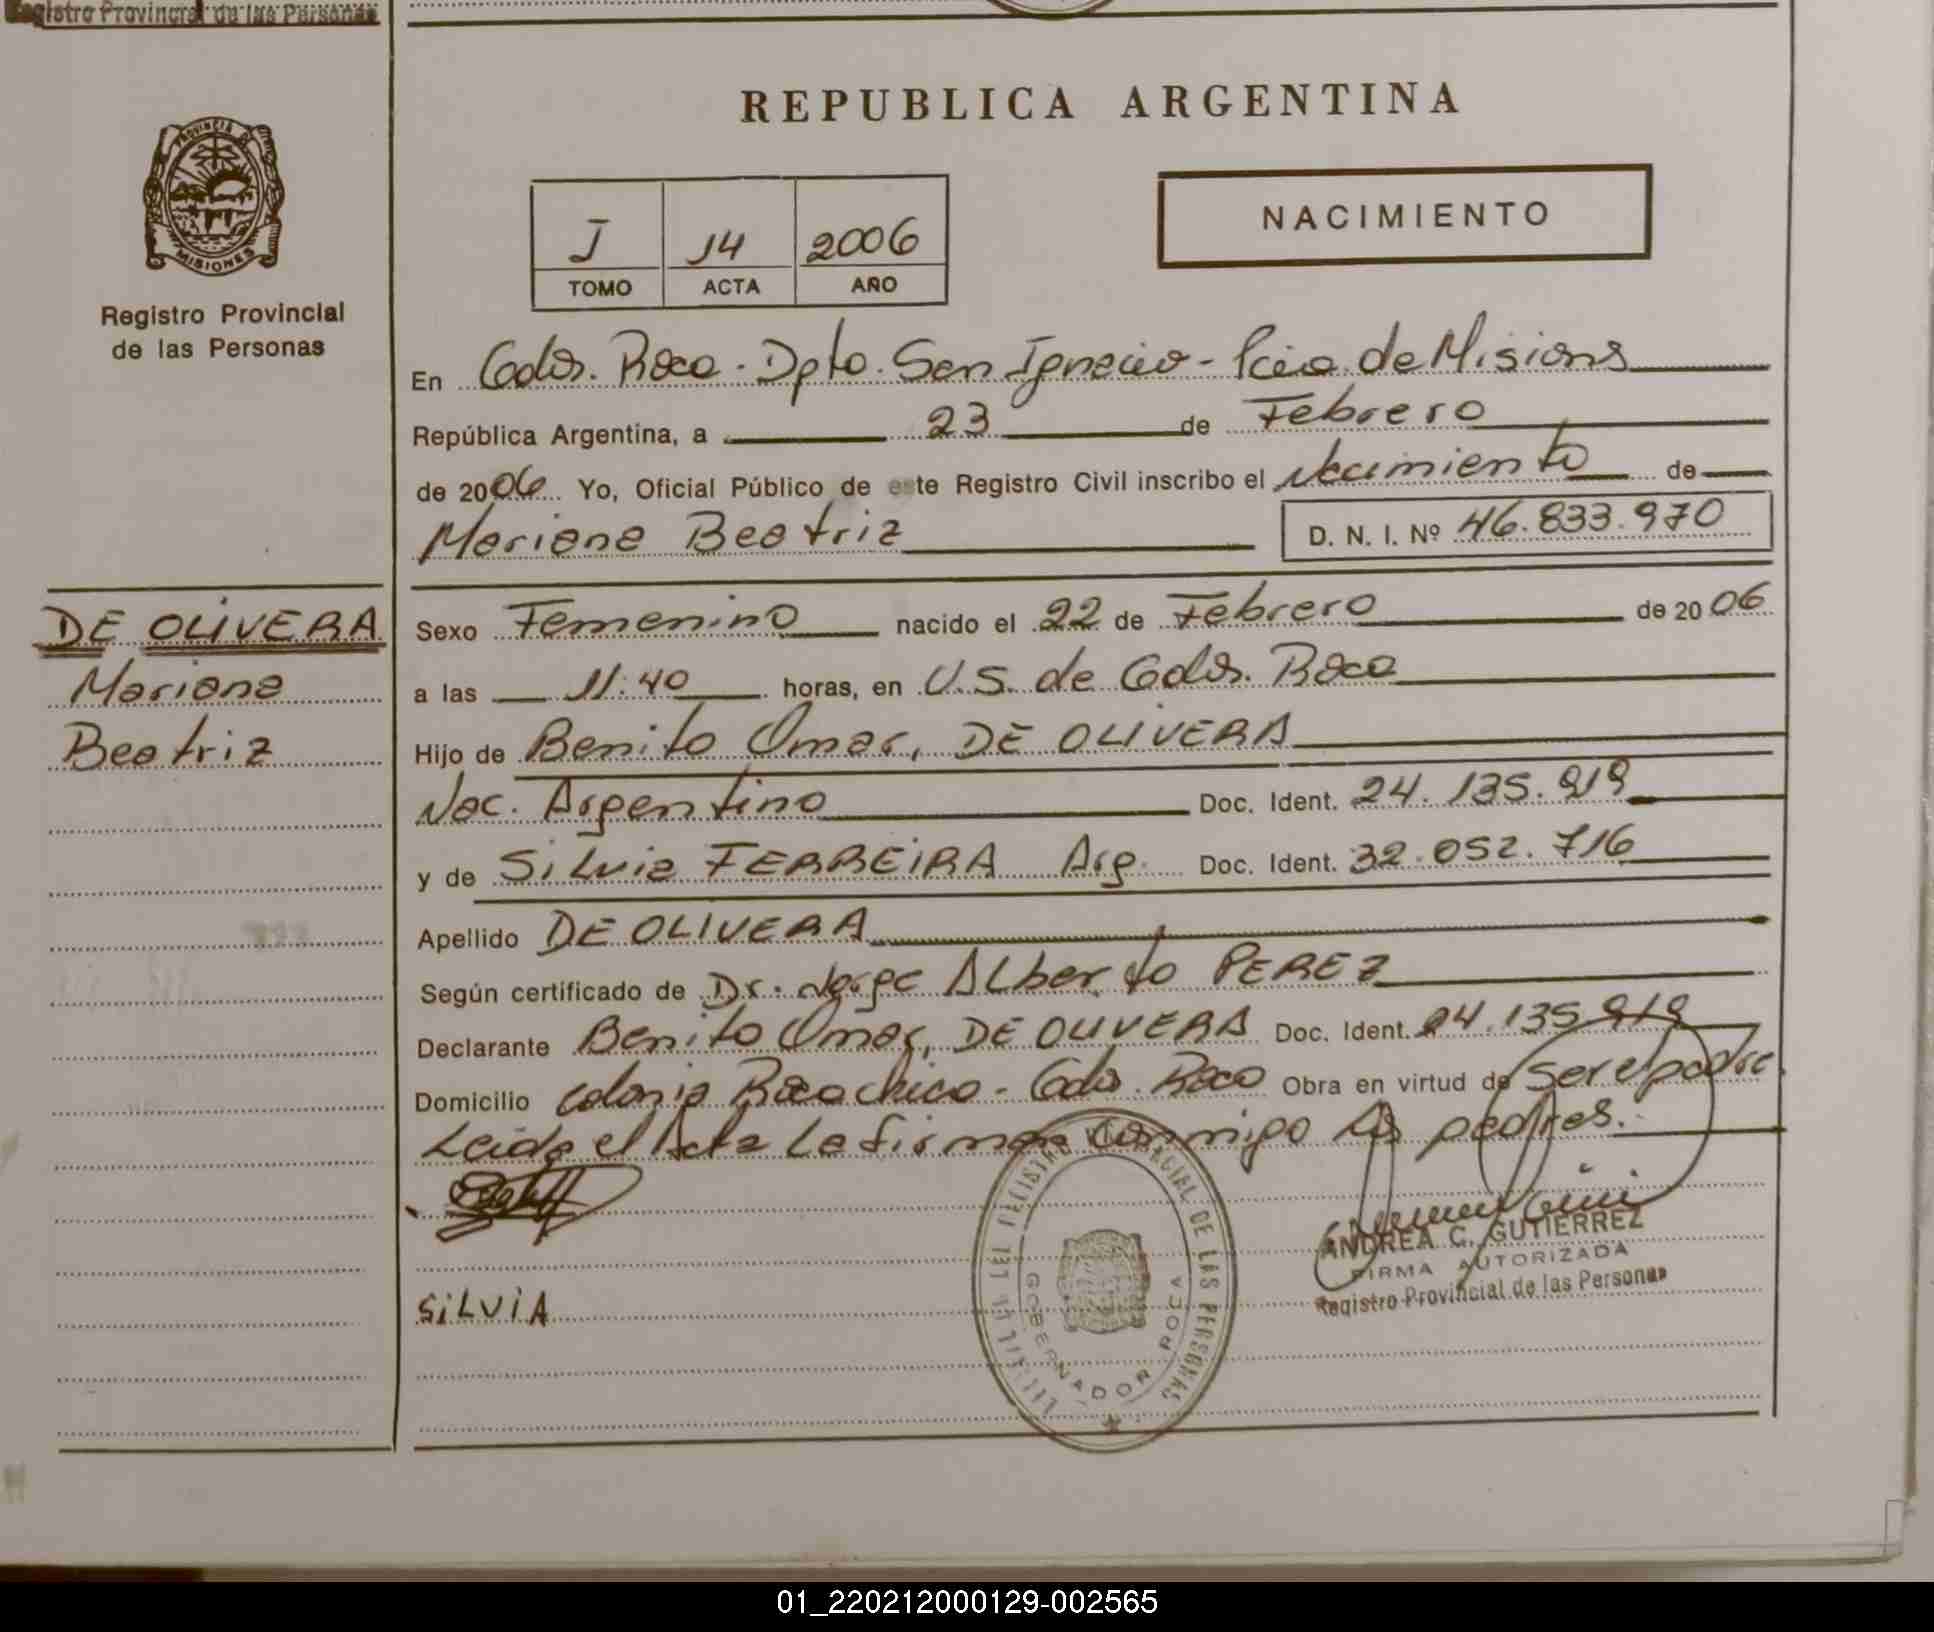 Registro Provincial de las Personas
REPUBLICA ARGENTINA
PROVINCIA DE
MISIONES
Registro Provincial
de las Personas
I 14 2006
TOMO ACTA AÑO
NACIMIENTO
En Gdor. Roca - Dpto. San Ignacio - Pcia de Misions
República Argentina, a 23 de Febrero
de 2006 Yo, Oficial Público de este Registro Civil inscribo el Nacimiento de
Mariana Beatriz D. N. I. Nº 46.833.970
DE OLIVERA
Mariana
Beatriz
Sexo Femenino nacido el 22 de Febrero de 2006
a las 11:40 horas, en U.S. de Gdor. Roca
Hijo de Benito Omar, DE OLIVERA
Nac. Argentino Doc. Ident. 24.135.919
y de Silvia FERREIRA Arg. Doc. Ident. 32.052.716
Apellido DE OLIVERA
Según certificado de Dr. Jorge Alberto PEREZ
Declarante Benito Omar, DE OLIVERA Doc. Ident. 24.135.919
Domicilio Colonia Roca chico - Gdor. Roca Obra en virtud de ser el padre.
Leida el Acta La firman conmigo los padres.
SILVIA
PROVINCIAL DE LAS PERSONAS
GOBERNADOR ROCA
ANDREA C. GUTIERREZ
FIRMA AUTORIZADA
Registro Provincial de las Personas
01_220212000129-002565